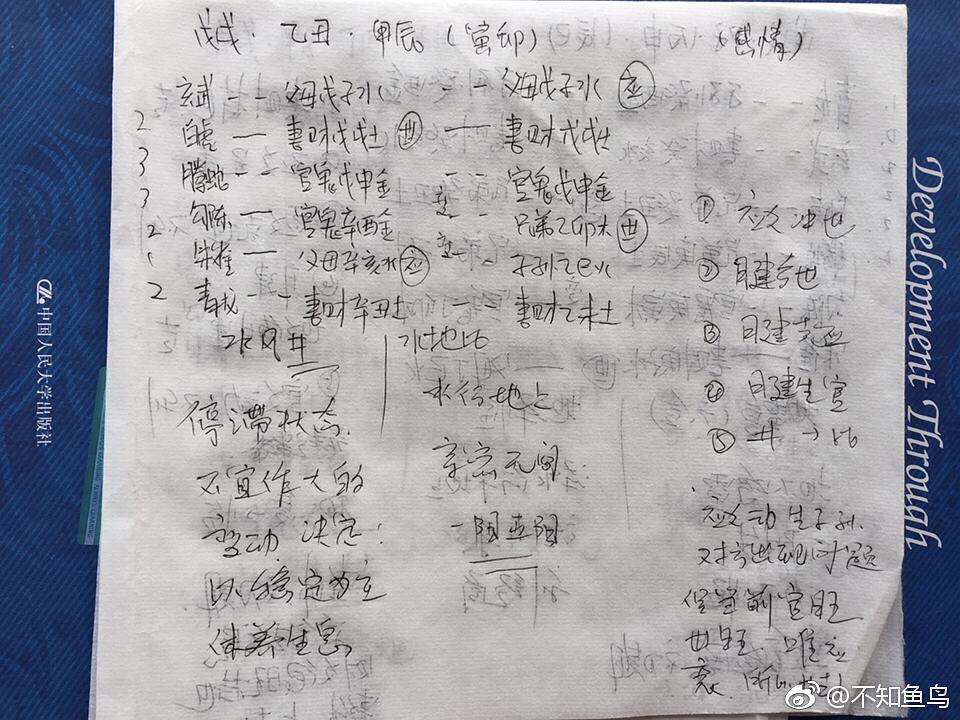 戊戌·乙丑·甲辰(寅卯) (感情)
玄武 -- 父母戊子水 -- 父母戊子水 应
2 白虎 — 妻财戊戌土 世 — 妻财戊戌土
3 腾蛇 -- 官鬼戊申金 -- 官鬼戊申金
3 勾陈 — 官鬼辛酉金 -- 兄弟乙卯木 世
2 朱雀 — 父母辛亥水 应 -- 子孙乙巳火
2 青龙 -- 妻财辛丑土 -- 妻财乙未土
水风井 水地比
停滞状态.
不宜作大的
变动 决定:
以稳定为主
休养生息
水行地上
亲密无间
① 应爻冲世
② 日建合世
③ 日建克应
④ 日建生官
⑤ 井→比
应爻动生子孙.
对方出现问题
官旺
世旺. 唯应
衰.
Development Through
中国人民大学出版社
@不知鱼鸟